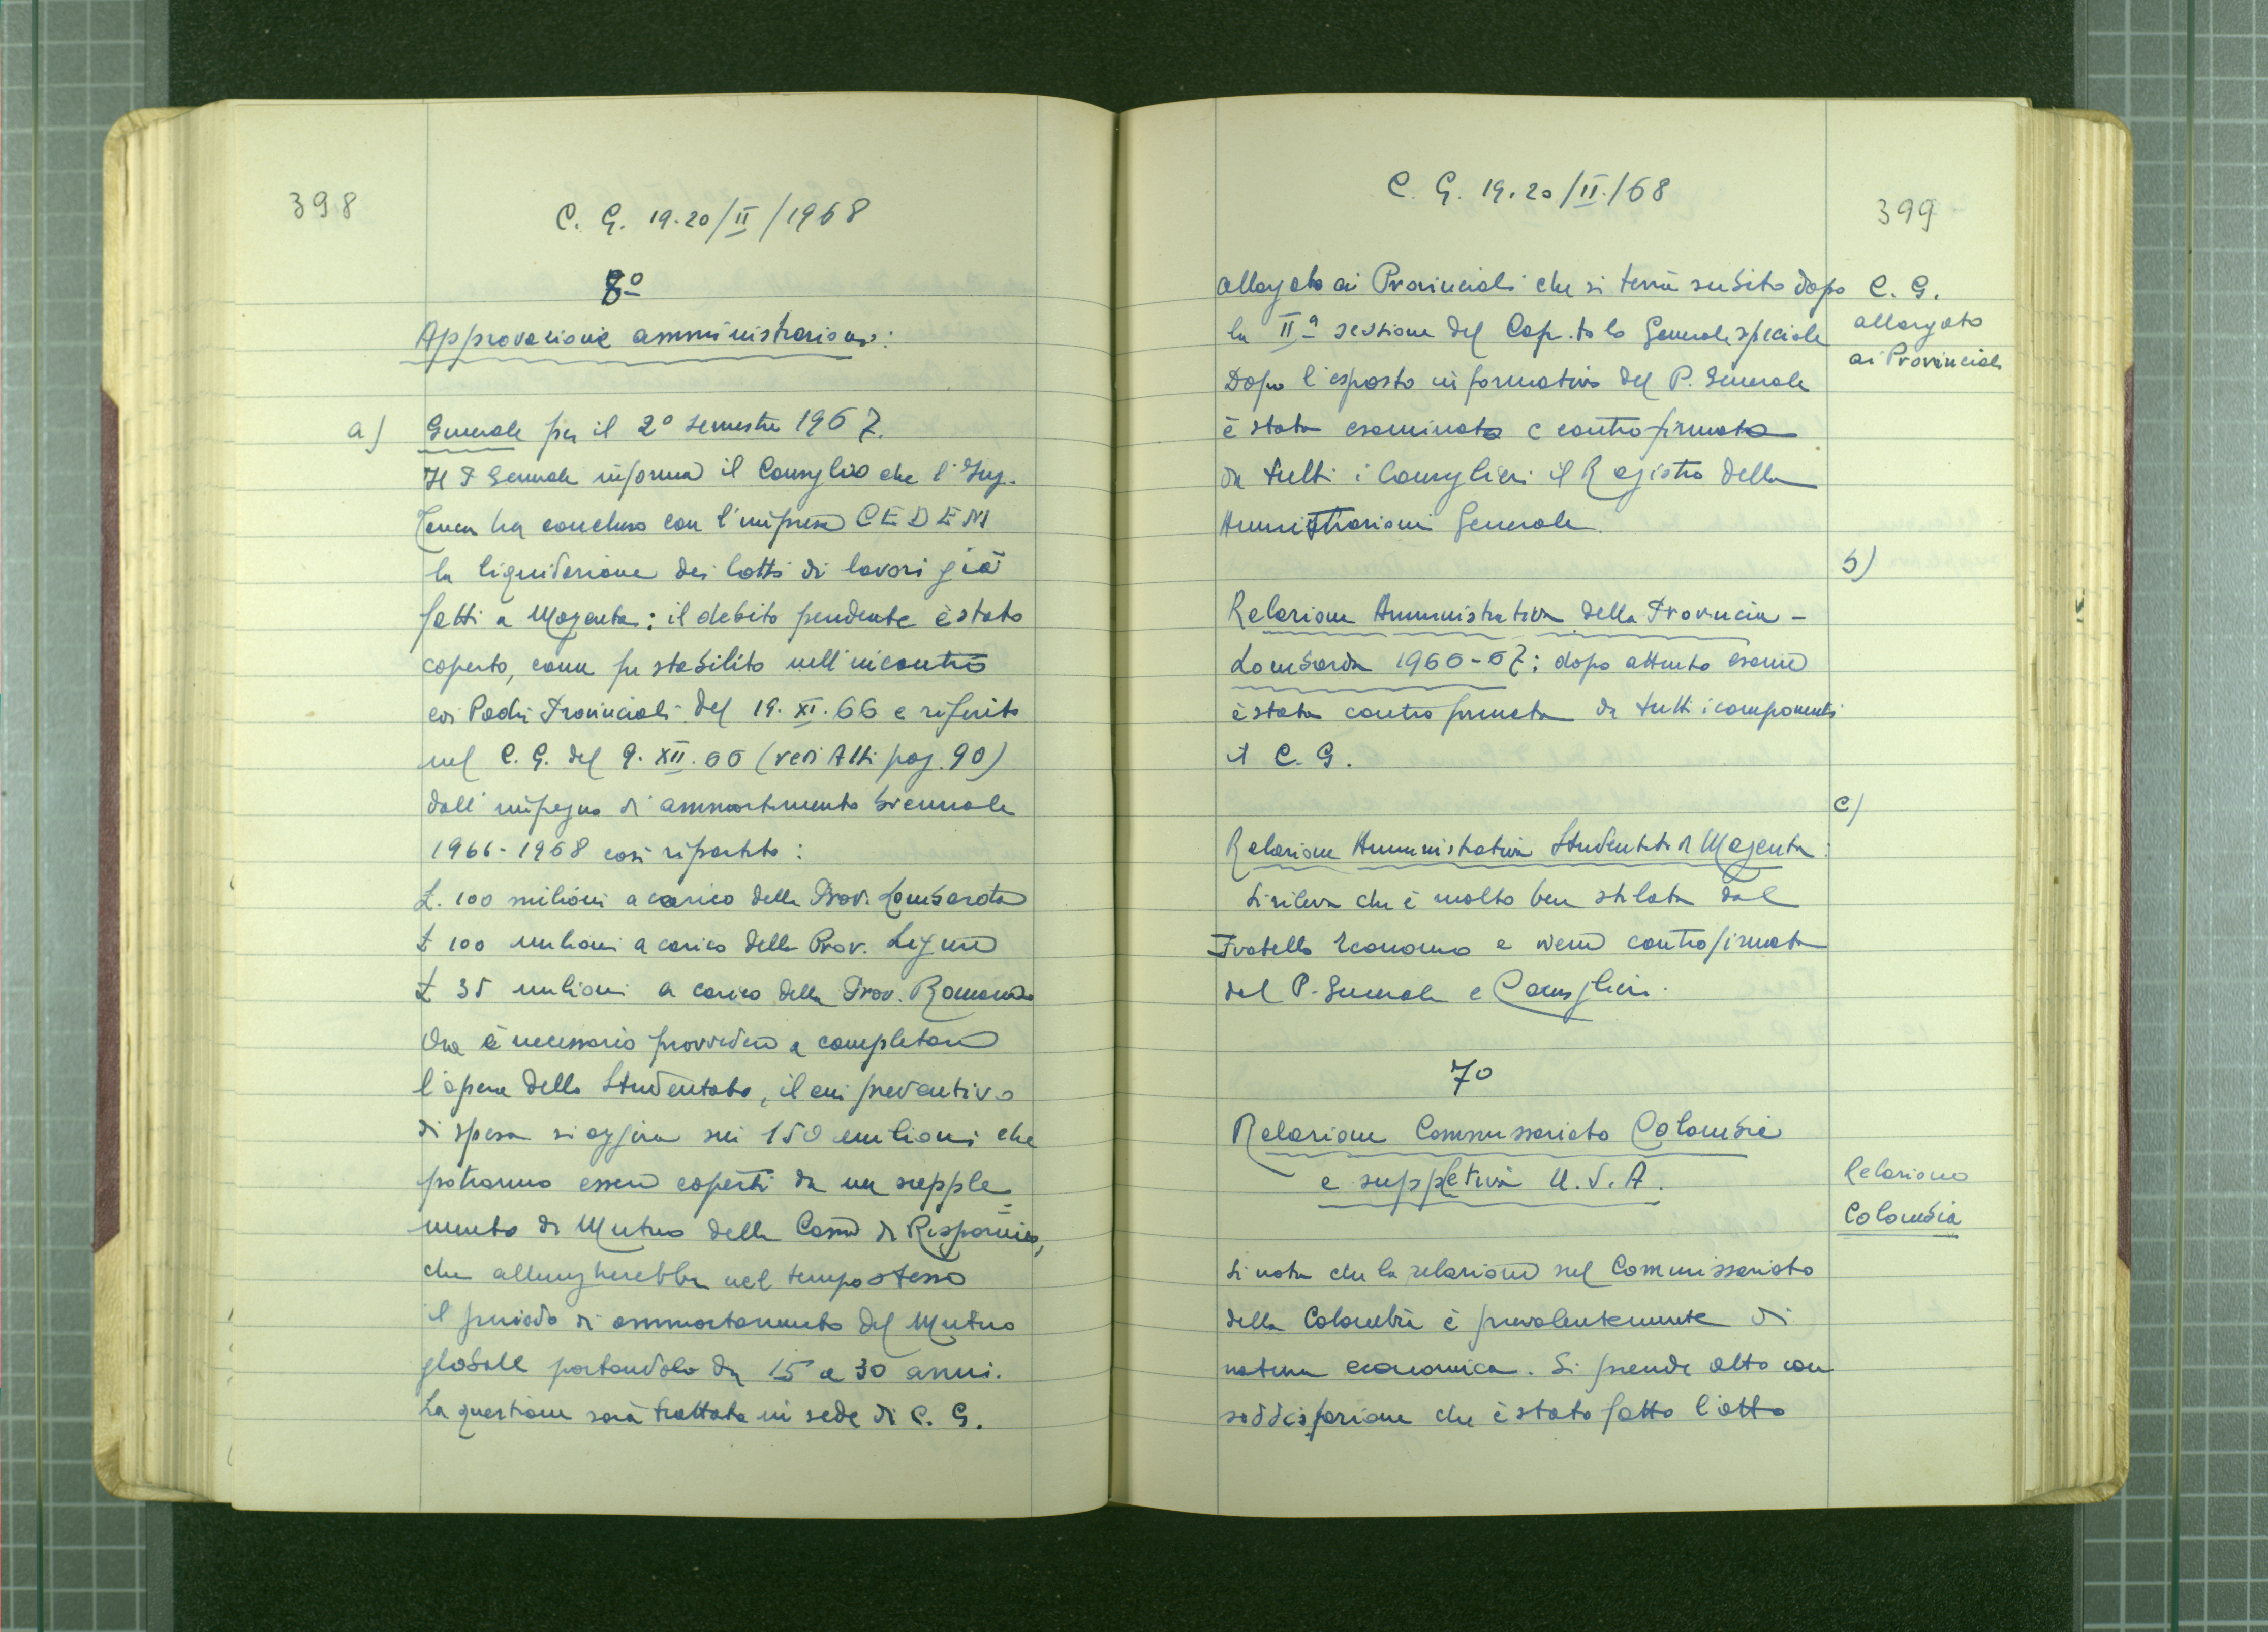 398
C. G. 19.20/II/1968
8º
Approvazione amministrazioni:
a) Generale per il 2º semestre 1967.
Il P Generale informa il Consiglio che l'Ing.
ha concluso con l'impresa CEDEM
la liquidazione dei lotti di lavori già
fatti a Magenta: il debito pendente è stato
coperto, come fu stabilito nell'incontro
coi Padri Provinciali del 19.XI.66 e riferito
nel C. G. del 9.XII.66 (vedi Atti pag. 90)
dall'impegno di ammortamento biennale
1966-1968 così ripartito:
£. 100 milioni a carico della Prov. Lombarda
£ 100 milioni a carico della Prov. Ligure
£ 35 milioni a carico della Prov. Romana
Ora è necessario provvedere a completare
l'opera dello Studentato, il cui preventivo
di spesa si aggira sui 150 milioni che
potranno essere coperti da un supple=
mento di Mutuo della Cassa di Risparmio,
che allungherebbe nel tempo stesso
il periodo di ammortamento del Mutuo
globale portandolo da 15 a 30 anni.
La questione sarà trattata in sede di C. G.
C. G. 19.20/II/68
399
allargato ai Provinciali che si terrà subito dopo
la IIª sessione del Cap.tolo Generale speciale
Dopo l'esposto informativo del P. Generale
è stata esaminata e controfirmata
da tutti i Consiglieri il Registro della
Amministrazioni Generale.
C. G.
allargato
ai Provinciali
b)
Relazione Amministrativa della Provincia -
Lombarda 1966-67; dopo attento esame
è stata controfirmata da tutti i componenti
il C. G.
c)
Relazione Amministrativa Studentato di Magenta:
Si rileva che è molto ben stilata dal
Fratello Economo e viene controfirmata
dal P. Generale e Consiglieri.
7º
Relazione Commissariato Colombia
e suppletiva U.S.A.
Relazione
Colombia
Si nota che la relazione sul Commissariato
della Colombia è prevalentemente di
natura economica. Si prende atto con
soddisfazione che è stato fatto l'atto